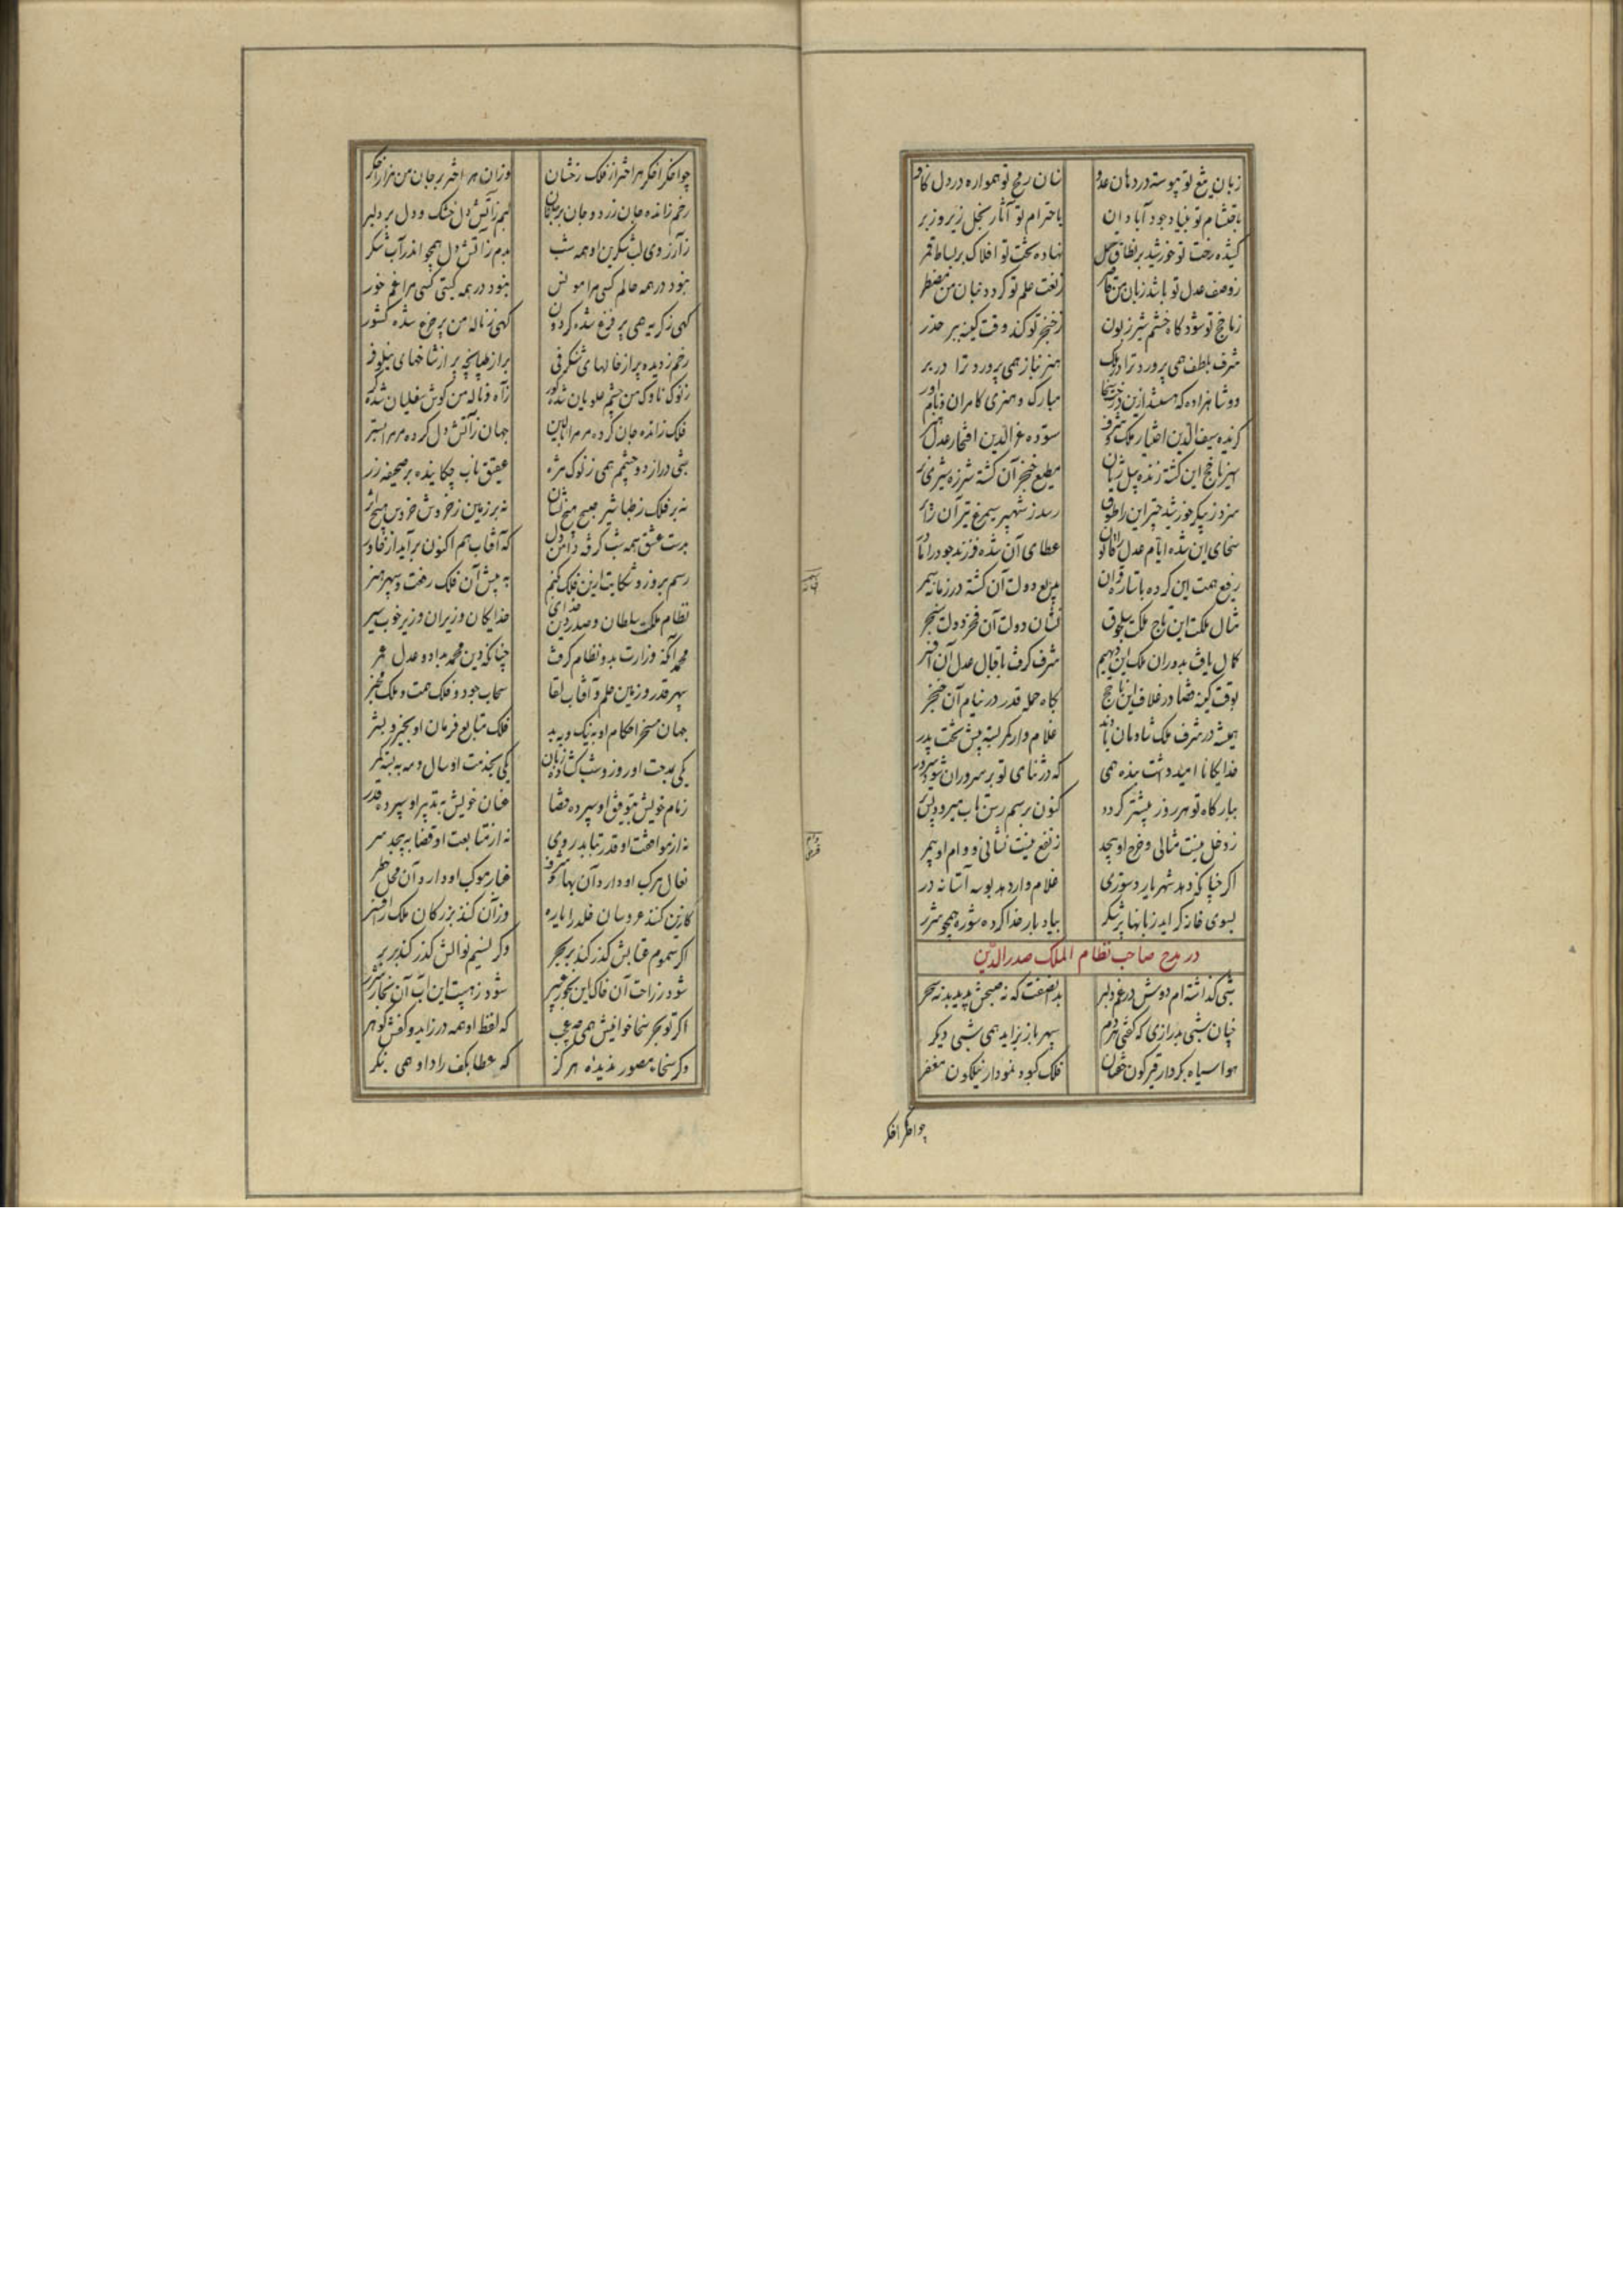 زبان تیغ تو پیوسته در دهان عدو سنان رمح تو همواره در دل کافر
باحتشام تو بنیاد جود آبادان باحترام تو آثار بخل زیر و زبر
کشیده رخت تو خورشید بر نطاق حمل نهاده تخت تو افلاک بر بساط قمر
ز وصف عدل تو باشد زبان من قاصر ز نعت حلم تو گردد بنان من مضطر
ز ناخج تو شود گاه خشم شیر زبون ز خنجر تو کند وقت کینه ببر حذر
شرف بلطف همی پرورد ترا در ملک هنر بناز همی پرورد ترا در بر
دو شاهزاده که هستند ازین درخت سخا مبارک و هنری کامران و نام‌آور
گزیده سیف‌الدین اختیار ملک و شرف ستوده عزالدین افتخار عدل و هنر
اسیر ناخج این گشته زنده پیل ژیان مطیع خنجر آن گشته شرزه شیر
سزد ز پیکر خورشید چتر این را طوق رسد ز شهپر سیمرغ تیر آن را پر
سخای این شده ایام عدل را قانون عطای آن شده فرزند جود را مادر
رفیع همت این کرده با ستاره قران بدیع دولت آن گشته در زمانه سمر
مثال ملکت این تاج ملکت سلجوق نشان دولت آن فخر دولت سنجر
کمال یافت بدوران ملک این دیهیم شرف گرفت باقبال عدل آن افسر
بوقت کینه قضا در غلاف این ناخج بگاه حمله قدر در نیام آن خنجر
همیشه در شرف ملک شادمان بادند غلام‌وار کمر بسته پیش تخت پدر
خدایگانا امید داشت بنده همی که در ثنای تو بر سروران شود سرور
ببارگاه تو هر روز پیشتر گردد کنون برسم رسن تاب میرود پس‌تر
ز دخل نیست مثالی و خرج او بیحد ز نفع نیست نشانی و وام او بیمر
اگر چنانکه دهد شهریار دستوری غلام‌وار دهد بوسه آستانه در
بسوی خانه گراید زبانها پر شکر بیاد بار خدا کرده شوره همچو شرر
در مدح صاحب نظام الملک صدرالدین
شبی گذاشته‌ام دوش در غم دلبر بدان صفت که نه صبحش پدید بد نه سحر
چنان شبی بدرازی که گفتی هر دم سپهر باز بزاید همی شبی دیگر
هوا سیاه بکردار قیرگون خفتان فلک کبود نمودار نیلگون مغفر
چو اخگر اخگر
چو اخگر اخگر هر اختر از فلک رخشان وزان هر اختر بر جان من هزار اخگر
رخم ز انده جان زرد و جان بر جانان لبم ز آتش دل خشک و دل بر دلبر
ز آرزوی لب شکرین او همه شب بدم ز آتش دل همچو اندر آب شکر
نبود در همه عالم کسی مرا مونس نبود در همه گیتی کسی مرا غم خور
گهی ز گریه من پر فزع شده گردون گهی ز ناله من پر جزع شده کشور
رخم ز دیده پر از خالهای شنگرفی بر از طپانچه پر از شاخهای نیلوفر
ز نوک ناوک من چشم علویان شده کور ز آه و ناله من گوش سفلیان شده کر
فلک ز انده جان کرده مر مرا بالین جهان ز آتش دل کرده مر مرا بستر
شبی دراز دو چشمم همی ز نوک مژه عقیق ناب چکاننده بر صحیفه زر
نه بر فلک ز طباشیر صبح هیچ نشان نه بر زمین ز خروش خروس هیچ اثر
بدست عشق همه شب گرفته دامن دل که آفتاب هم اکنون برآید از خاور
رسم بروز و شکایت ازین فلک کنم به پیش آن فلک رفعت و سپهر هنر
نظام ملکت سلطان و صدر دین خدای خدایگان وزیران وزیر خوب سیر
محمد آنکه وزارت بدو نظام گرفت چنانکه دین محمد بداد و عدل عمر
سپهر قدر و زمین حلم و آفتاب لقا سحاب جود و فلک همت و ملک مخبر
جهان مسخر احکام او به نیک و به بد فلک متابع فرمان او بخیر و بشر
یکی بمدحت او روز و شب گشاده زبان یکی بخدمت او سال و مه ببسته کمر
زمام خویش بتوفیق او سپرده قضا عنان خویش به تدبیر او سپرده قدر
نه از موافقت او قدر بتابد روی نه از متابعت او قضا بپیچد سر
نعال مرکب او دارد آن بها و شرف غبار موکب او دارد آن محل و خطر
کازین کنند عروسان خلد را یاره وزان کنند بزرگان ملک را افسر
اگر سموم عتابش گذر کند بر بحر وگر نسیم نوالش گذر کند بر بر
شود ز راحت آن خاک این بخور عبیر شود ز هیبت این آب آن بخار شرر
اگر تو بحر سخا خوانیش همی چه عجب که لفظ او همه در زاید و کفش گوهر
وگر سخا مصور ندیده هرگز که عطا بکف راد او همی بنگر